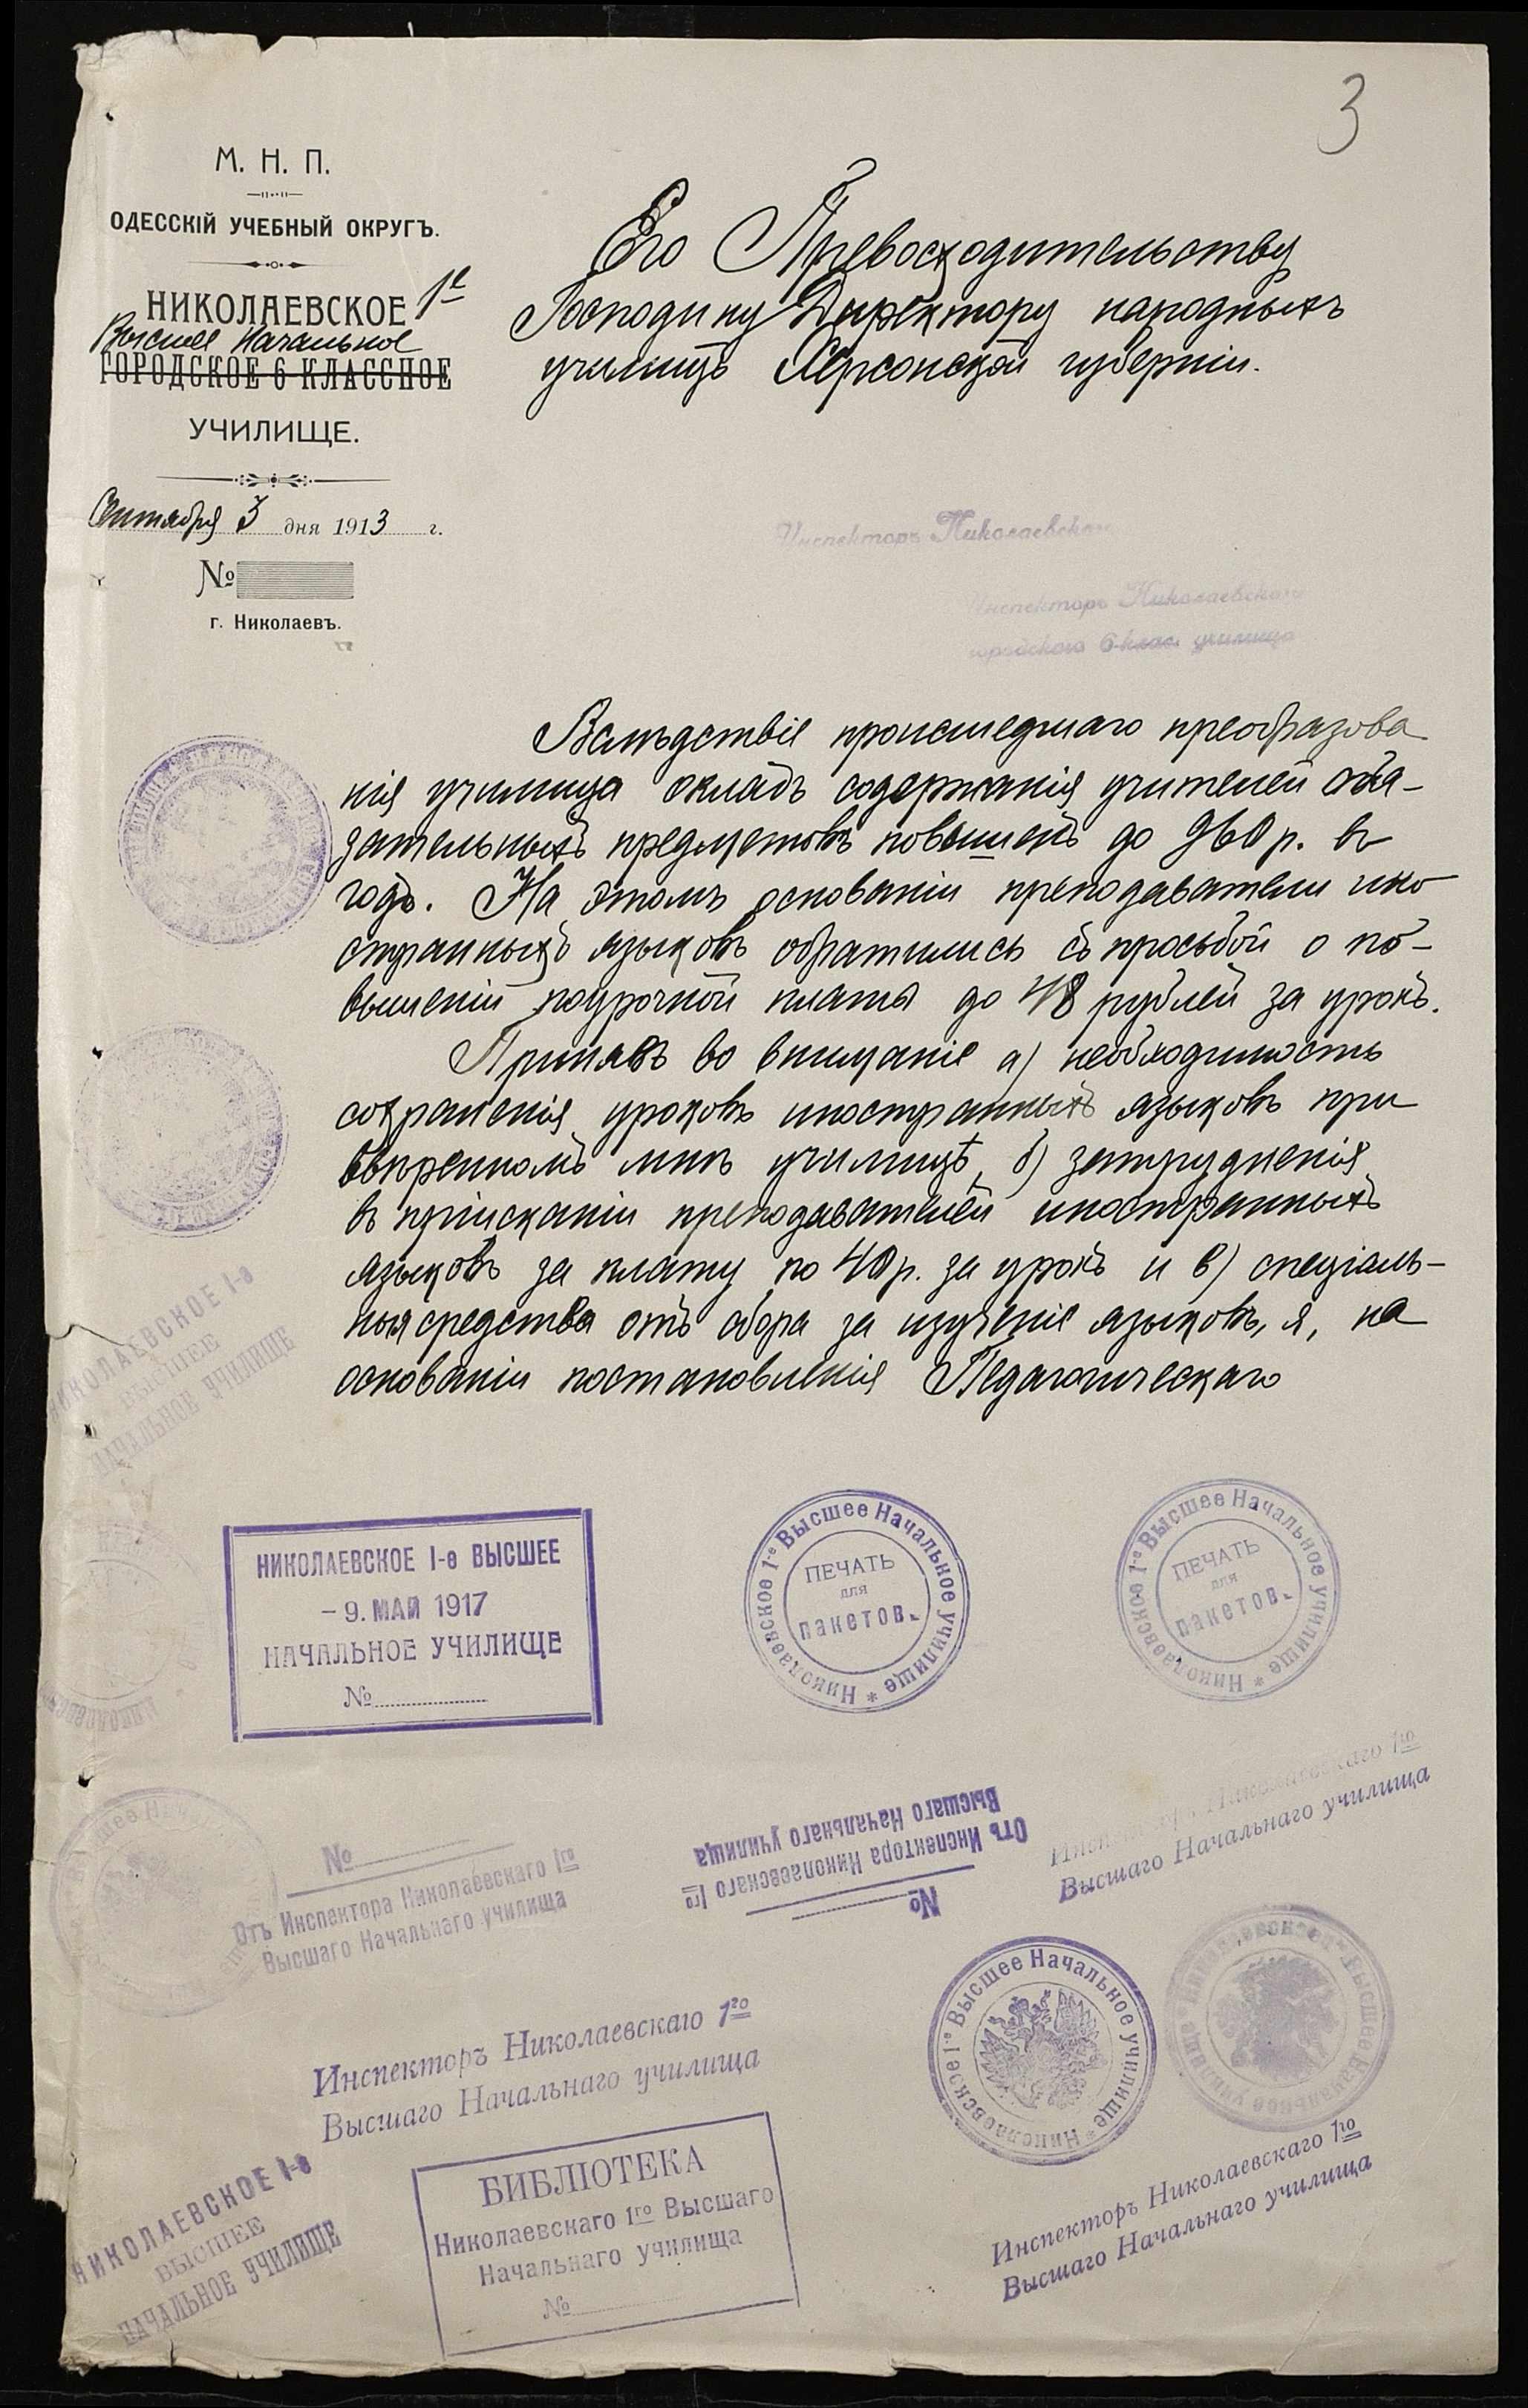 3
М. Н. П.
ОДЕССКІЙ УЧЕБНЫЙ ОКРУГЪ.
НИКОЛАЕВСКОЕ 1е
Высшее Начальное
ГОРОДСКОЕ 6 КЛАССНОЕ
УЧИЛИЩЕ.
Сентября 3 дня 1913 г.
№
г. Николаевъ.
Его Превосходительству
Господину Директору народныхъ
училищъ Херсонской губерніи.
Инспекторъ Николаевскаго
Инспекторъ Николаевскаго
городского 6-клас. училища
Вслѣдствіе происшедшаго преобразова
нія училища окладъ содержанія учителей обя-
зательныхъ предметовъ повышенъ до 960 р. въ
годъ. На этомъ основаніи преподаватели ино
странныхъ языковъ обратились съ просьбой о по-
вышеніи поурочной платы до 48 рублей за урокъ.
Принявъ во вниманіе а) необходимость
сохраненія уроковъ иностранныхъ языковъ при
ввѣренномъ мнѣ училищѣ, б) затрудненія
въ пріисканіи преподавателей иностранныхъ
языковъ за плату по 40 р. за урокъ и в) спеціаль-
ныя средства отъ сбора за изученіе языковъ, я, на
основаніи постановленія Педагогическаго
НИКОЛАЕВСКОЕ I-е
ВЫСШЕЕ
НАЧАЛЬНОЕ УЧИЛИЩЕ
НИКОЛАЕВСКОЕ I-е ВЫСШЕЕ
– 9. МАЙ 1917
НАЧАЛЬНОЕ УЧИЛИЩЕ
№
Николаевское 1-е Высшее Начальное училище *
ПЕЧАТЬ
для
пакетовъ
Николаевское 1-е Высшее Начальное училище *
ПЕЧАТЬ
для
пакетовъ
№
Отъ Инспектора Николаевскаго 1го
Высшаго Начальнаго училища
№
Отъ Инспектора Николаевскаго 1го
Высшаго Начальнаго училища
Инспекторъ Николаевскаго 1го
Высшаго Начальнаго училища
Николаевское 1-е Высшее Начальное училище *
Николаевское 1-е Высшее Начальное училище
Инспекторъ Николаевскаго 1го
Высшаго Начальнаго училища
Инспекторъ Николаевскаго 1го
Высшаго Начальнаго училища
НИКОЛАЕВСКОЕ I-е
ВЫСШЕЕ
НАЧАЛЬНОЕ УЧИЛИЩЕ
БИБЛІОТЕКА
Николаевскаго 1го Высшаго
Начальнаго училища
№